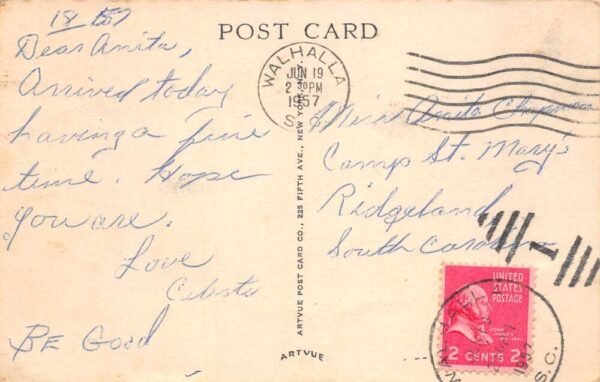 18 157
POST CARD
Dear Anita,
Arrived today
having a fine
time. Hope
you are.
Love
Celeste
BE Good
WALHALLA
JUN 19
2 30 PM
1957
S.C.
Miss Anita Chapman
Camp St. Mary's
Ridgeland,
South Carolina
ARTVUE POST CARD CO., 225 FIFTH AVE., NEW YORK
ARTVUE
UNITED
STATES
POSTAGE
2 CENTS 2
1957
S.C.